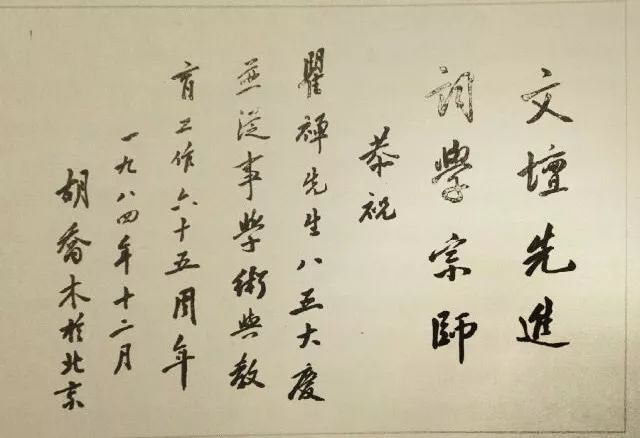 文壇先進
詞學宗師
恭祝
瞿禪先生八五大慶
並從事學術與教
育工作六十五周年
一九八四年十二月
胡喬木於北京